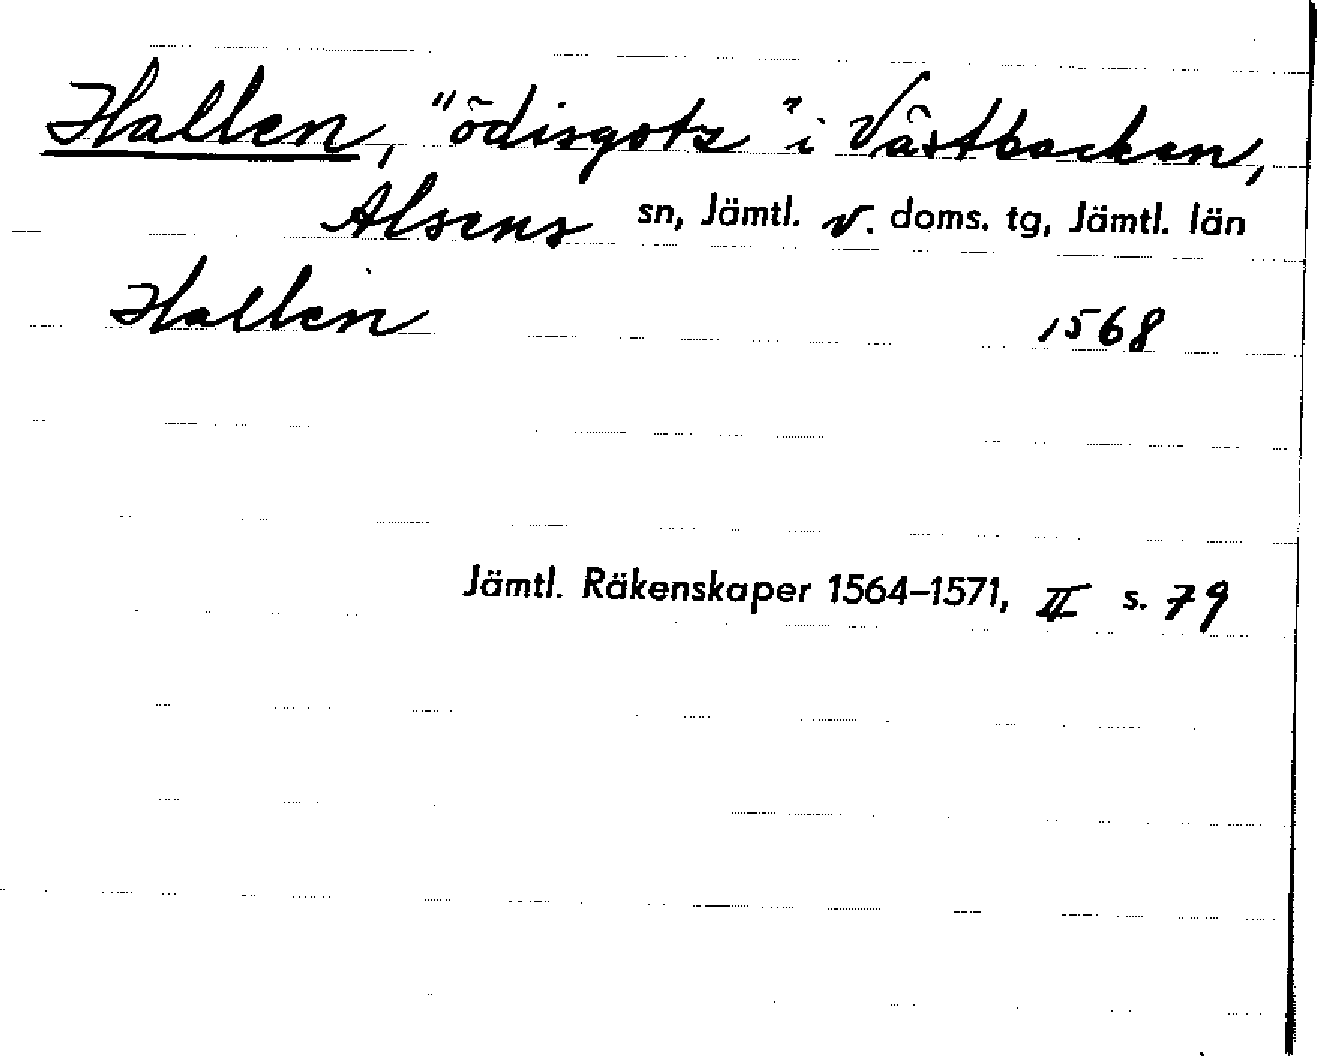 Hallen, "ödisgotz" i Västbacken,
Alsens sn, Jämtl. v. doms. tg, Jämtl. län
Hallen 1568
Jämtl. Räkenskaper 1564–1571, II s. 79